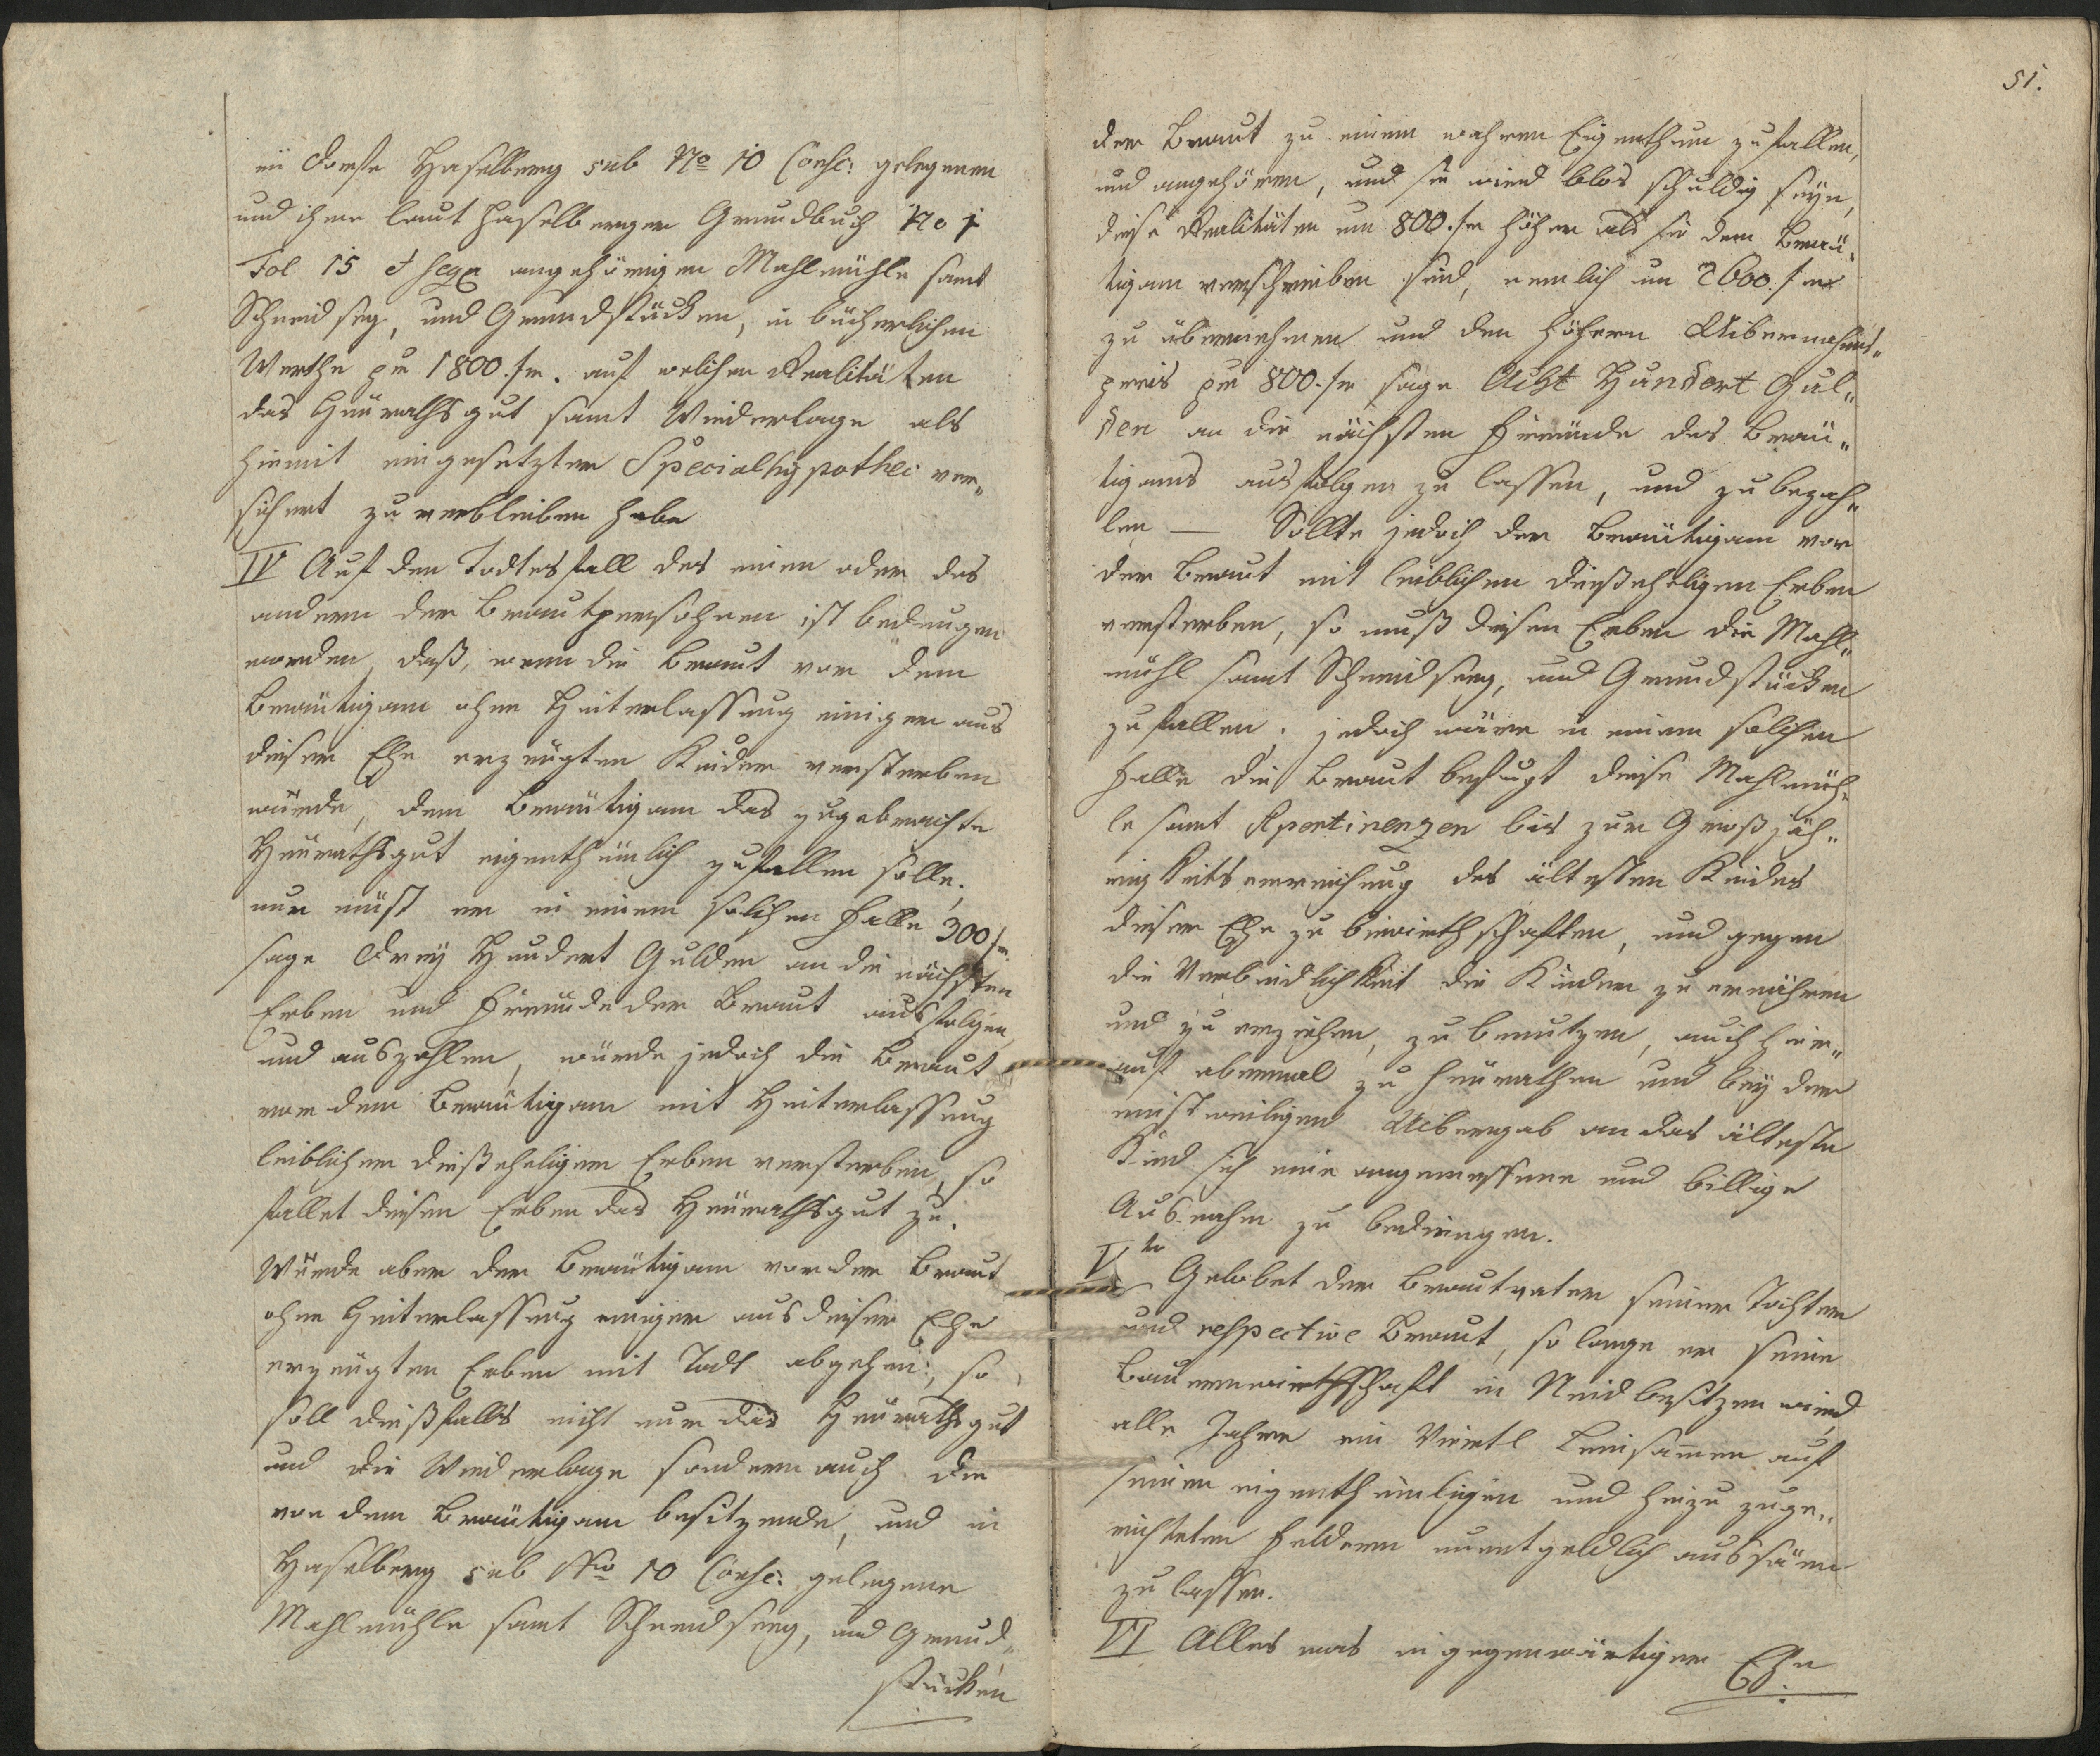 in Dorfe Haselberg sub No 10 Consc: gelegenen
und ihme laut Haselberger Grundbuch No 1
Fol 15 et seqq angehörigen Mahlmühle samt
Schneidseg, und Grundstücken, in bücherlichen
Werthe per 1800. fr. auf welchen Realitäten
das Heurathsgut samt Wiederlage als
hiemit eingesetzten Specialhypothec ver„
sichert zu verbleiben habe
IV Auf den Todtesfall des einen oder des
andern der Brautpersohnen ist bedungen
worden, daß, wenn die Braut vor dem
Bräutigam ohne Hinterlassung einiger aus
dieser Ehe erzeugten Kinder versterben
würde, dem Bräutigam das zugebrachte
Heurathsgut eigenthümlich zufallen solle,
nur müst er in einem solchen Falle 300 fr.
sage Drey Hundert Gulden an die nächsten
Erben und Freunde der Braut ausfolgen
und auszahlen, würde jedoch die Braut
vor dem Bräutigam mit Hinterlassung
leiblicher dießeheligen Erben versterben, so
fallet diesen Erben das Heurathsgut zu.
Würde aber der Bräutigam vor der Braut
ohne Hinterlassung einiger aus dieser Ehe
erzeugten Erben mit Todt abgehen; so
soll dießfalls nicht nur das Heurathsgut
und die Wiederlage sondern auch die
von dem Bräutigam besitzende, und in
Haselberg sub Nro 10 Consc: gelegene
Mahlmühle samt Schneidseeg, und Grund„
stücken
51.
der Braut zu einem wahren Eigenthum zufallen,
und angehören, und sie wird blos schuldig seyn,
diese Realitäten um 800. fr höher als sie dem Bräu„
tigam verschrieben sind, nemlich um 2600. fr
zu übernehmen und den höhern Uibernahms„
preis per 800. fr sage Acht Hundert Gul„
den an die nächsten Freunde des Bräu„
tigams ausfolgen zu lassen, und zu bezah„
len — Sollte jedoch der Bräutigam vor
der Braut mit leiblichen dießeheligen Erben
versterben, so muß diesen Erben die Mahl„
mühl samt Schneidseeg, und Grundstücken
zufallen, jedoch wäre in einem solchen
Falle die Braut befugt diese Mahlmüh„
le samt Apertinenzen bis zur Großjäh„
rigkeitserreichung des ältesten Kindes
dieser Ehe zu bewirthschaften, und gegen
die Verbindlichkeit die Kinder zu ernähren
und zu erziehen, zu benutzen, auch hier„
auf abermal zu heurathen und bey der
einstweiligen Uibergab an das älteste
Kind sich eine angemessene und billige
Ausnahm zu bedingen.
Vto Gelobet der Brautvater seiner Tochter
und respective Braut, so lange er seine
Bauernwirthschaft in Neid besitzen wird
alle Jahre ein Viertl Leinsamen auf
seinen eigenthümligen und hiezu zuge„
richteten Feldern unentgeldlich aussäen
zu lassen.
VI Alles was in gegenwärtiger Ehe